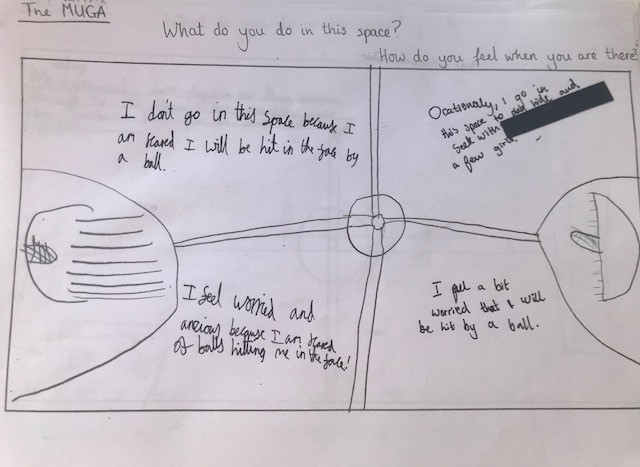 The MUGA
What do you do in this space?
How do you feel when you are there?
I don't go in this space because I
am scared I will be hit in the face by
a ball.
Ocationaly, I go in
this space to play hide and
seek with
a few girls.
I feel worried and
ancious because I am scared
of balls hitting me in the face!
I feel a bit
worried that I will
be hit by a ball.